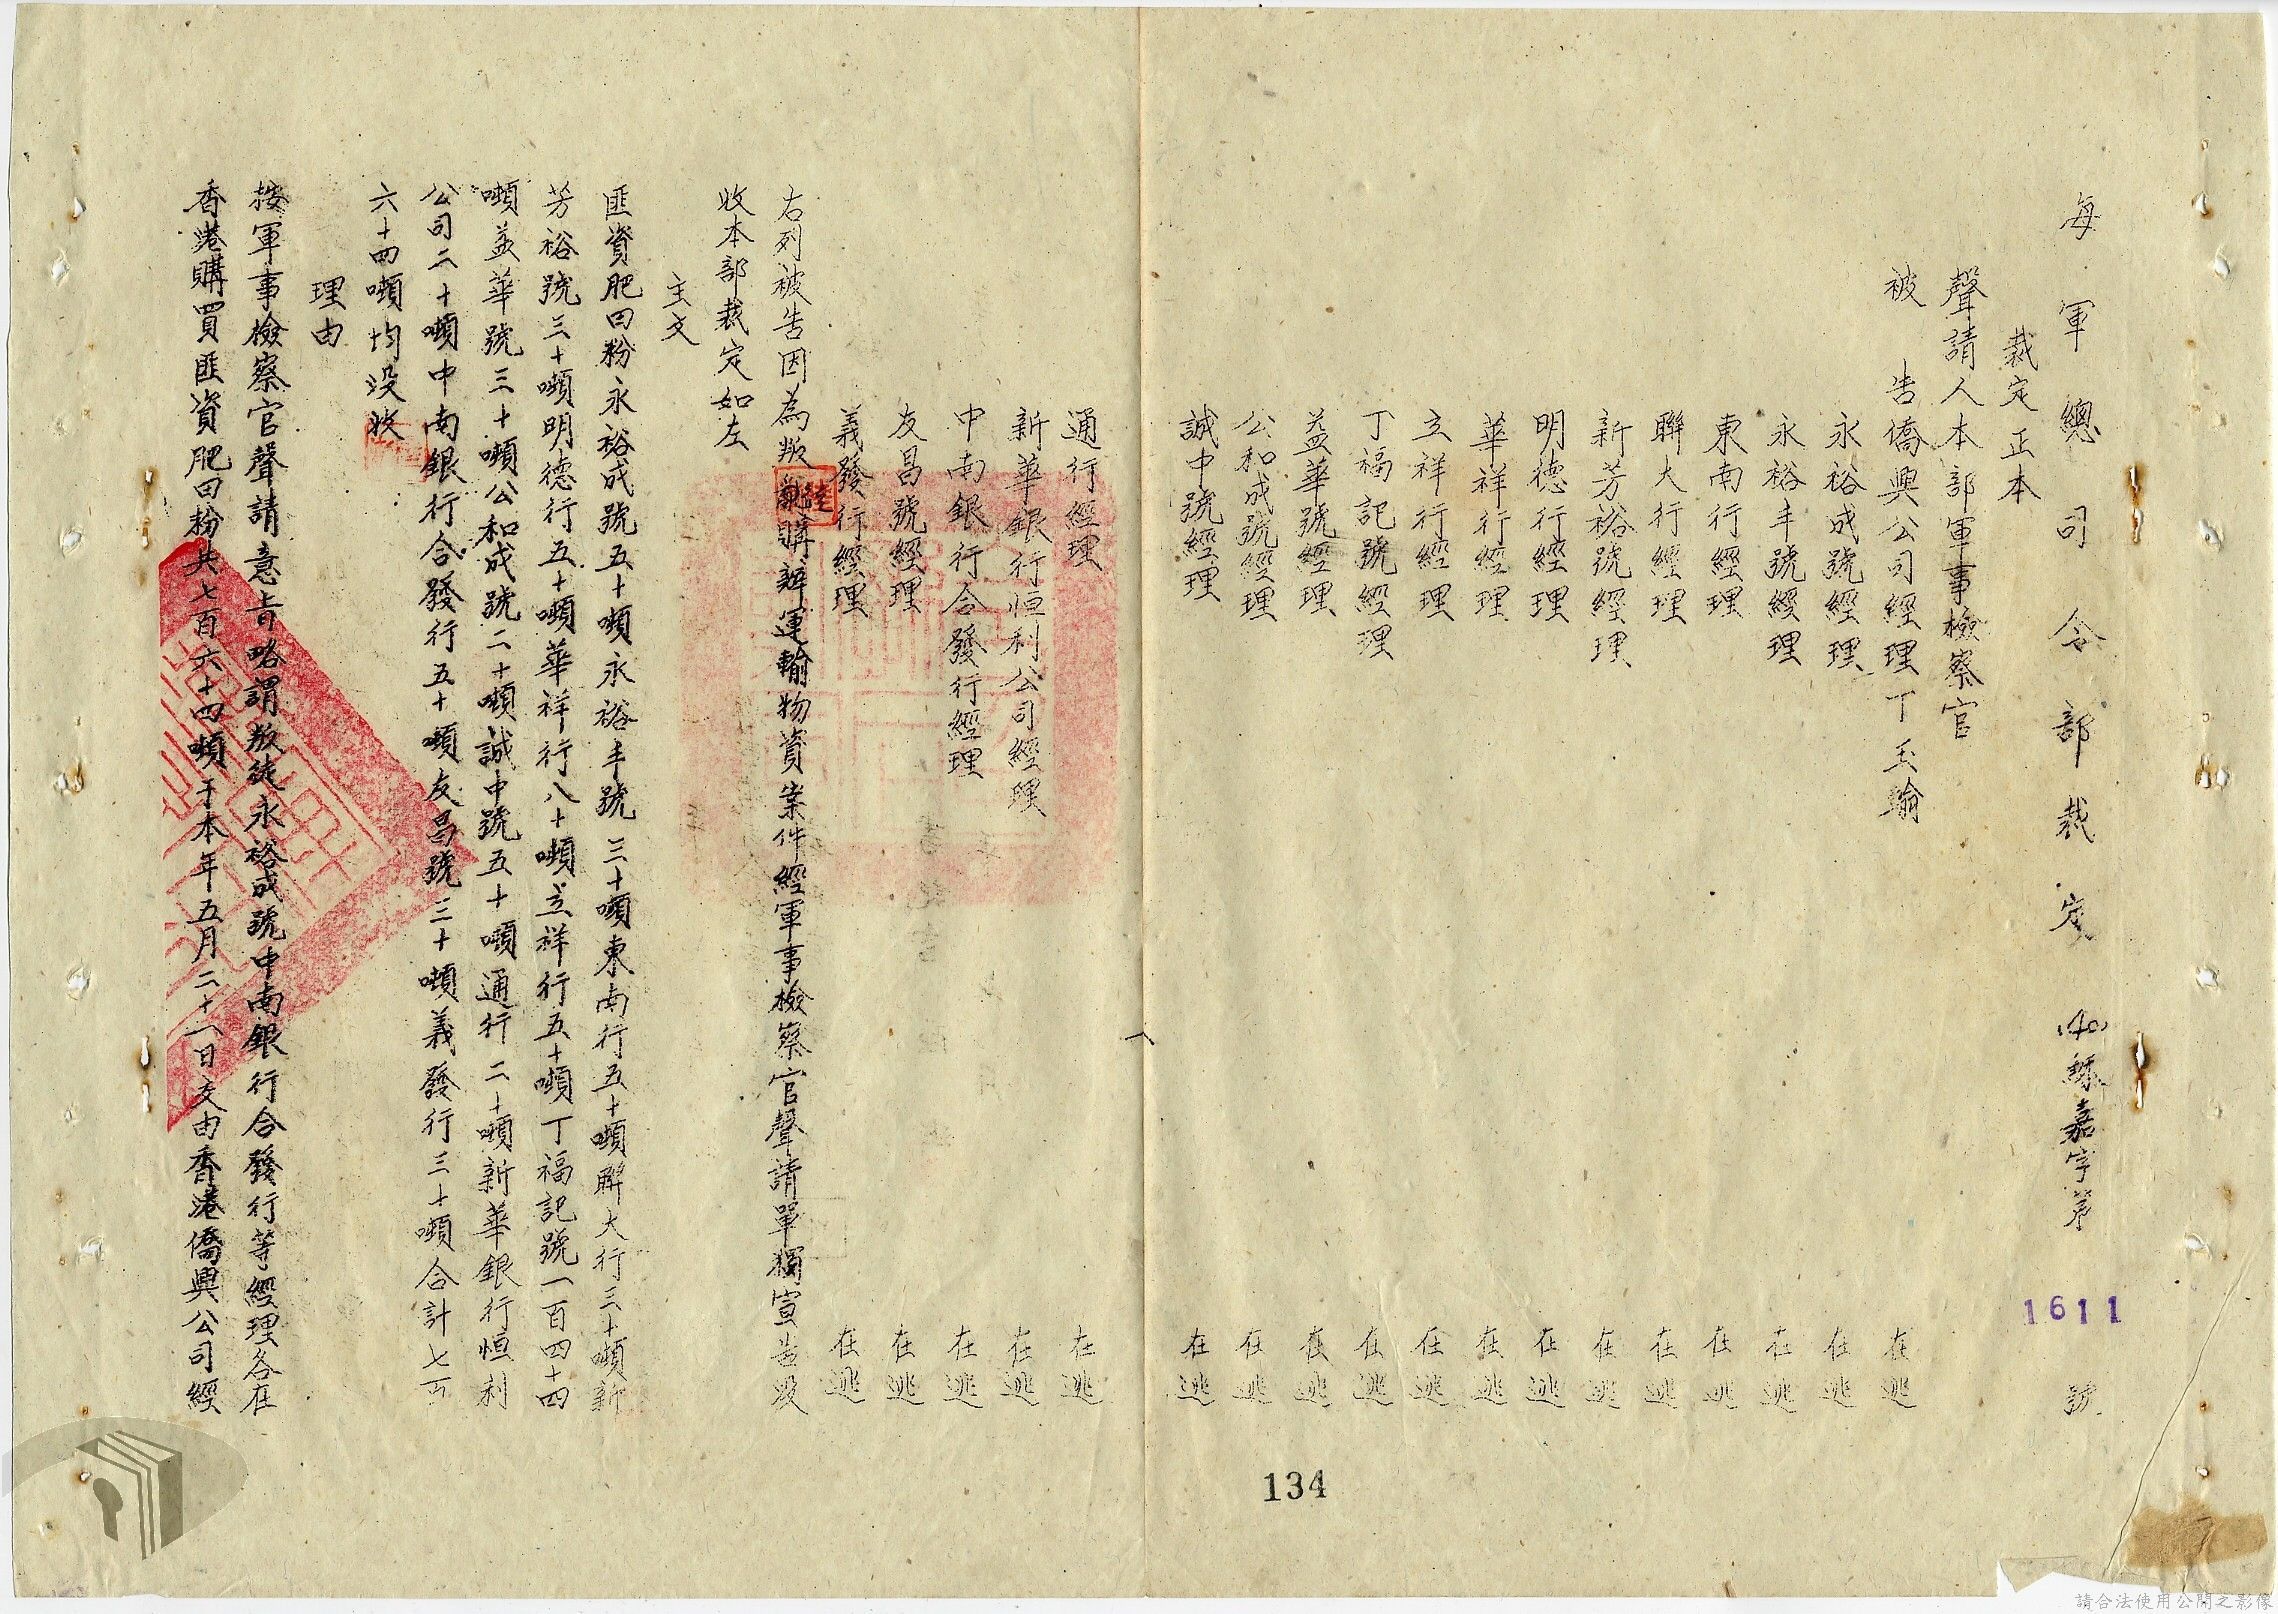 海軍總司令部裁定 (40)穌嘉字第1611號
裁定正本
聲請人本部軍事檢察官
被告僑興公司經理丁玉瑜 在逃
永裕成號經理 在逃
永裕丰號經理 在逃
東南行經理 在逃
聯大行經理 在逃
新芳裕號經理 在逃
明德行經理 在逃
華祥行經理 在逃
立祥行經理 在逃
丁福記號經理 在逃
益華號經理 在逃
公和成號經理 在逃
誠中號經理 在逃
通行經理 在逃
新華銀行恒利公司經理 在逃
中南銀行合發行經理 在逃
友昌號經理 在逃
義發行經理 在逃
右列被告因為叛亂購辦運輸物資案件經軍事檢察官聲請單獨宣告沒
收本部裁定如左
主文
匪資肥田粉永裕成號五十噸永裕丰號三十噸東南行五十噸聯大行三十噸新
芳裕號三十噸明德行五十噸華祥行八十噸立祥行五十噸丁福記號一百四十四
噸益華號三十噸公和成號二十噸誠中號五十噸通行二十噸新華銀行恒利
公司二十噸中南銀行合發行五十噸友昌號三十噸義發行三十噸合計七百
六十四噸均沒收
理由
按軍事檢察官聲請意旨略謂叛徒永裕成號中南銀行合發行等經理各在
香港購買匪資肥田粉共七百六十四噸于本年五月二十八日交由香港僑興公司經
134
請合法使用公開之影像